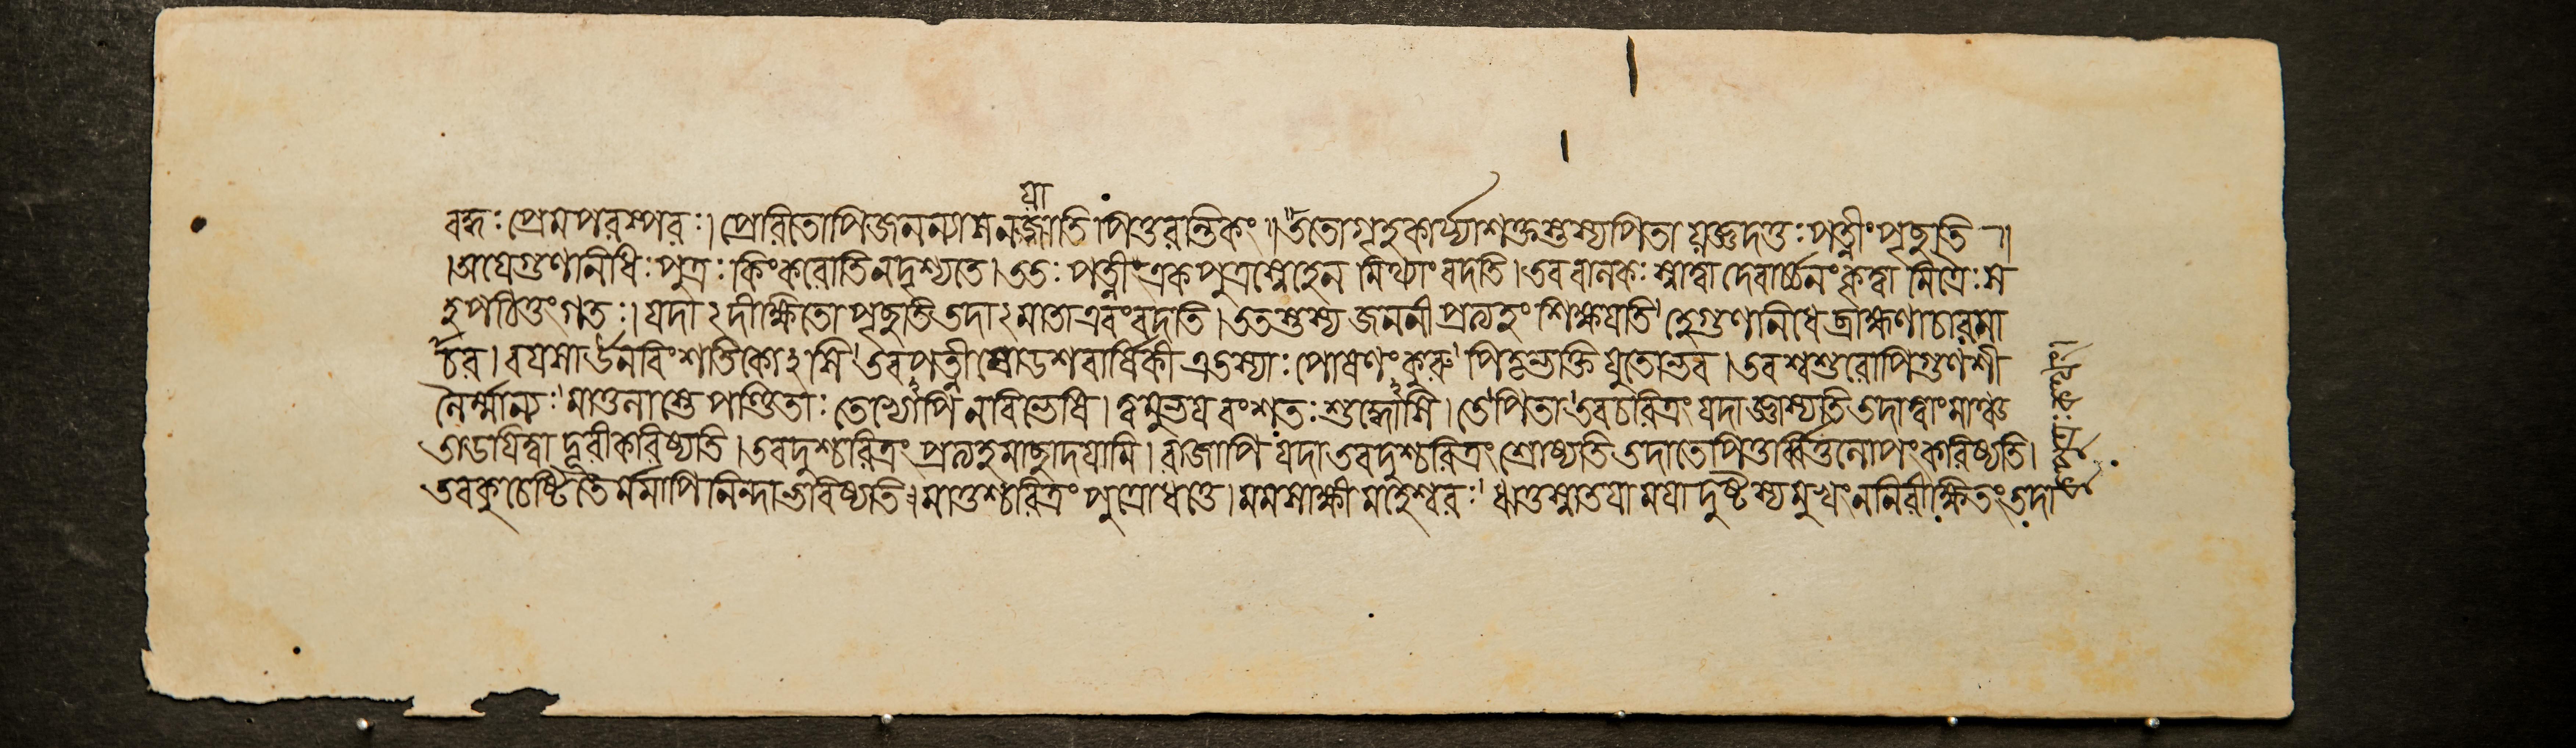 বদ্ধঃ প্রেমপরস্পরঃ। প্রেরিতোপিজনন্যাসনজাতি পিতুরন্তিকং॥ ততোগৃহকার্য্যাশক্তস্তস্যপিতা যজ্ঞদত্তঃ পত্নীং পৃছতি
।অযেগুণানিধিঃ পুত্রঃ কিংকরোতিনদৃশ্যতে।ততঃ পত্নীএকপুত্রস্নেহেন মিথ্যাং বদতি।তববালকঃ স্নাত্বা দেবার্চ্চনংকৃত্বা মিত্রৈঃ স
হপঠিতুংগতঃ। যদা২দীক্ষিতো পৃছতি তদা২মাতা এবংবদতি।ততস্তস্য জননী প্রত্যহং শিক্ষযতি হেগুণানিধে ব্রাহ্মণাচারমা
চর।বযসাঊনবিংশতিকো২সি তবপত্নী ষোডশবার্ষিকী এতস্যাঃ পোষণংকুরু পিতৃভক্তিযুতোভব।তবশ্বশুরোপিগুণশী
নৈর্ম্মান্যঃ মাতুলাস্তে পণ্ডিতাঃ তেভ্যোপি নবিভেষি। ত্বমুভযবংশতঃ শুদ্ধোসি। তেপিতা তবচরিত্রং যদাজ্ঞাস্যতি তদাত্বাংমাঞ্চ
তাডযিত্বা দূরীকরিষ্যতি।তবদুশ্চরিত্রং প্রত্যহমাছাদযামি।রাজাপি যদাতবদুশ্চরিত্রং শ্রোষ্যতি তদাতেপিতুর্বৃত্তিলোপংকরিষ্যতি।
তবকুচেষ্টিতৈর্মমাপি নিন্দাভবিষ্যতি। মাতুশ্চরিত্রং পুত্রোধত্তে।মমসাক্ষী মহেশ্বরঃ ঋতুস্নাতযা মযা দুষ্টস্যমুখংননিরীক্ষিতং তদা